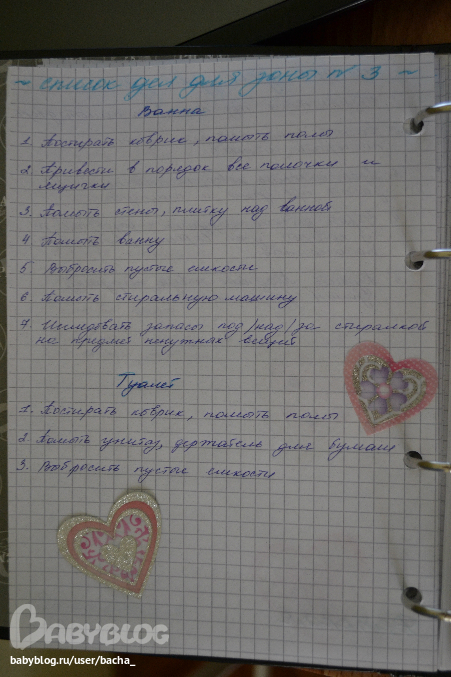 ~ список дел для зоны № 3 ~
Ванна
1. Постирать коврик, помыть полы
2. Привести в порядок все полочки и
ящички
3. Помыть стены, плитку над ванной
4. Помыть ванну
5. Выбросить пустые емкости
6. Помыть стиральную машину
7. Исследовать запасы под/над/за стиралкой
на предмет ненужных вещей
Туалет
1. Постирать коврик, помыть полы
2. Помыть унитаз, держатель для бумаги
3. Выбросить пустые емкости
BABYBLOG
babyblog.ru/user/bacha_